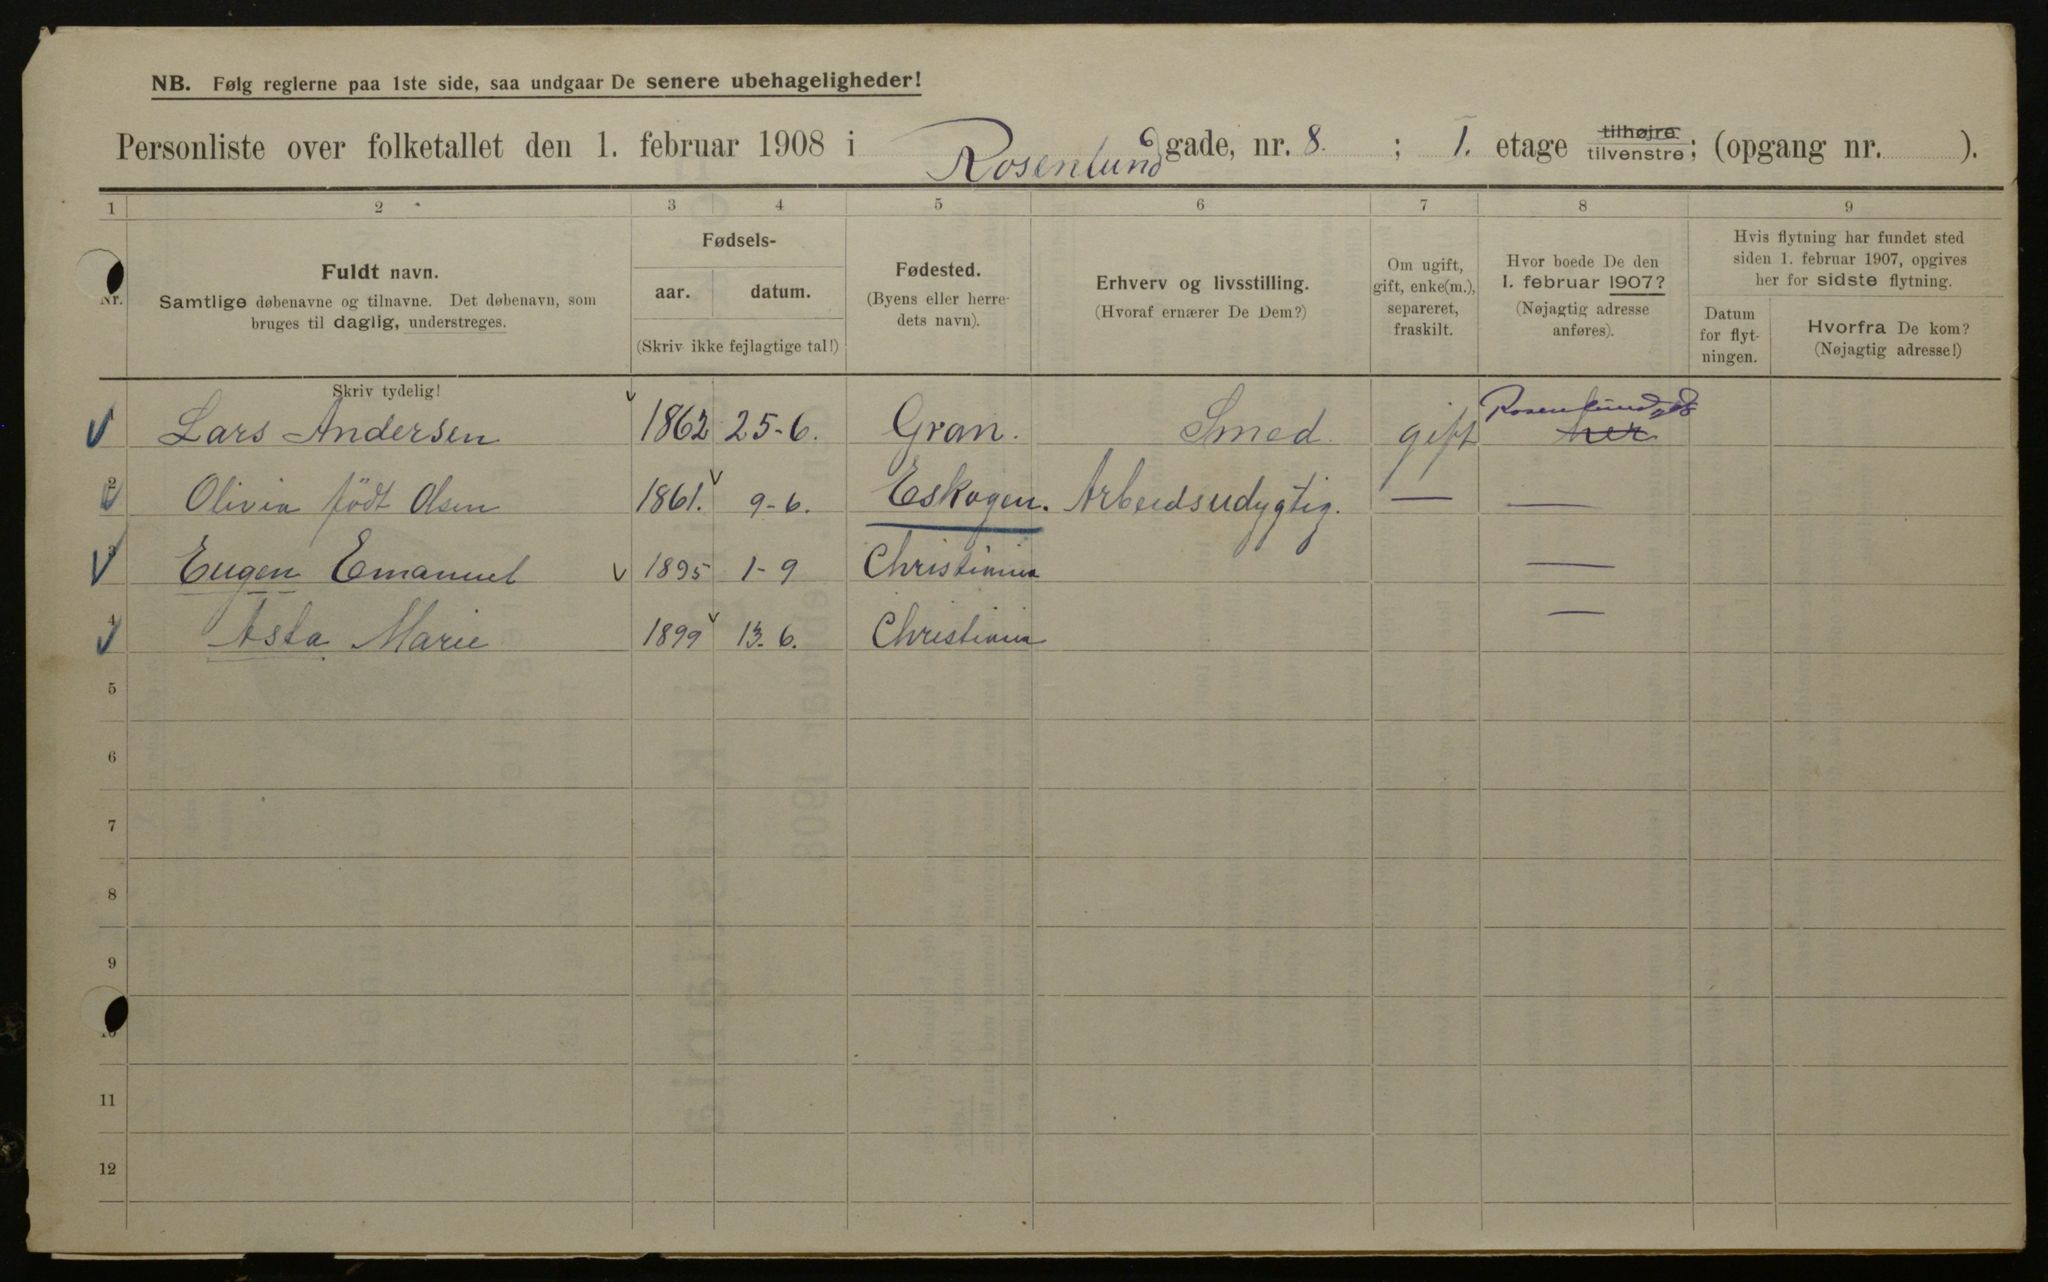 NB. Følg reglerne paa 1ste side, saa undgaar De senere ubehageligheder!
Personliste over folketallet den 1. februar 1908 i Rosenlundgade, nr. 8. ; 1. etage tilhøjre tilvenstre; (opgang nr. ).
1 2 3 4 5 6 7 8 9
Nr.
Fuldt navn.
Samtlige døbenavne og tilnavne. Det døbenavn, som
bruges til daglig, understreges.
Skriv tydelig!
Fødsels-
aar. datum.
(Skriv ikke fejlagtige tal!)
Fødested.
(Byens eller herre-
dets navn).
Erhverv og livsstilling.
(Hvoraf ernærer De Dem?)
Om ugift,
gift, enke(m.),
separeret,
fraskilt.
Hvor boede De den
1. februar 1907?
(Nøjagtig adresse
anføres).
Hvis flytning har fundet sted
siden 1. februar 1907, opgives
her for sidste flytning.
Datum
for flyt-
ningen.
Hvorfra De kom?
(Nøjagtig adresse!)
1 Lars Andersen 1862 25-6. Gran. Smed. gift Rosenlundgd 8 her
2 Olivia födt Olsen 1861. 9-6. Eskogen. Arbeidsudygtig. — —
3 Eugen Emanuel 1895 1-9 Christiania —
4 Asta Marie 1899 13-6. Christiania —
5
6
7
8
9
10
11
12